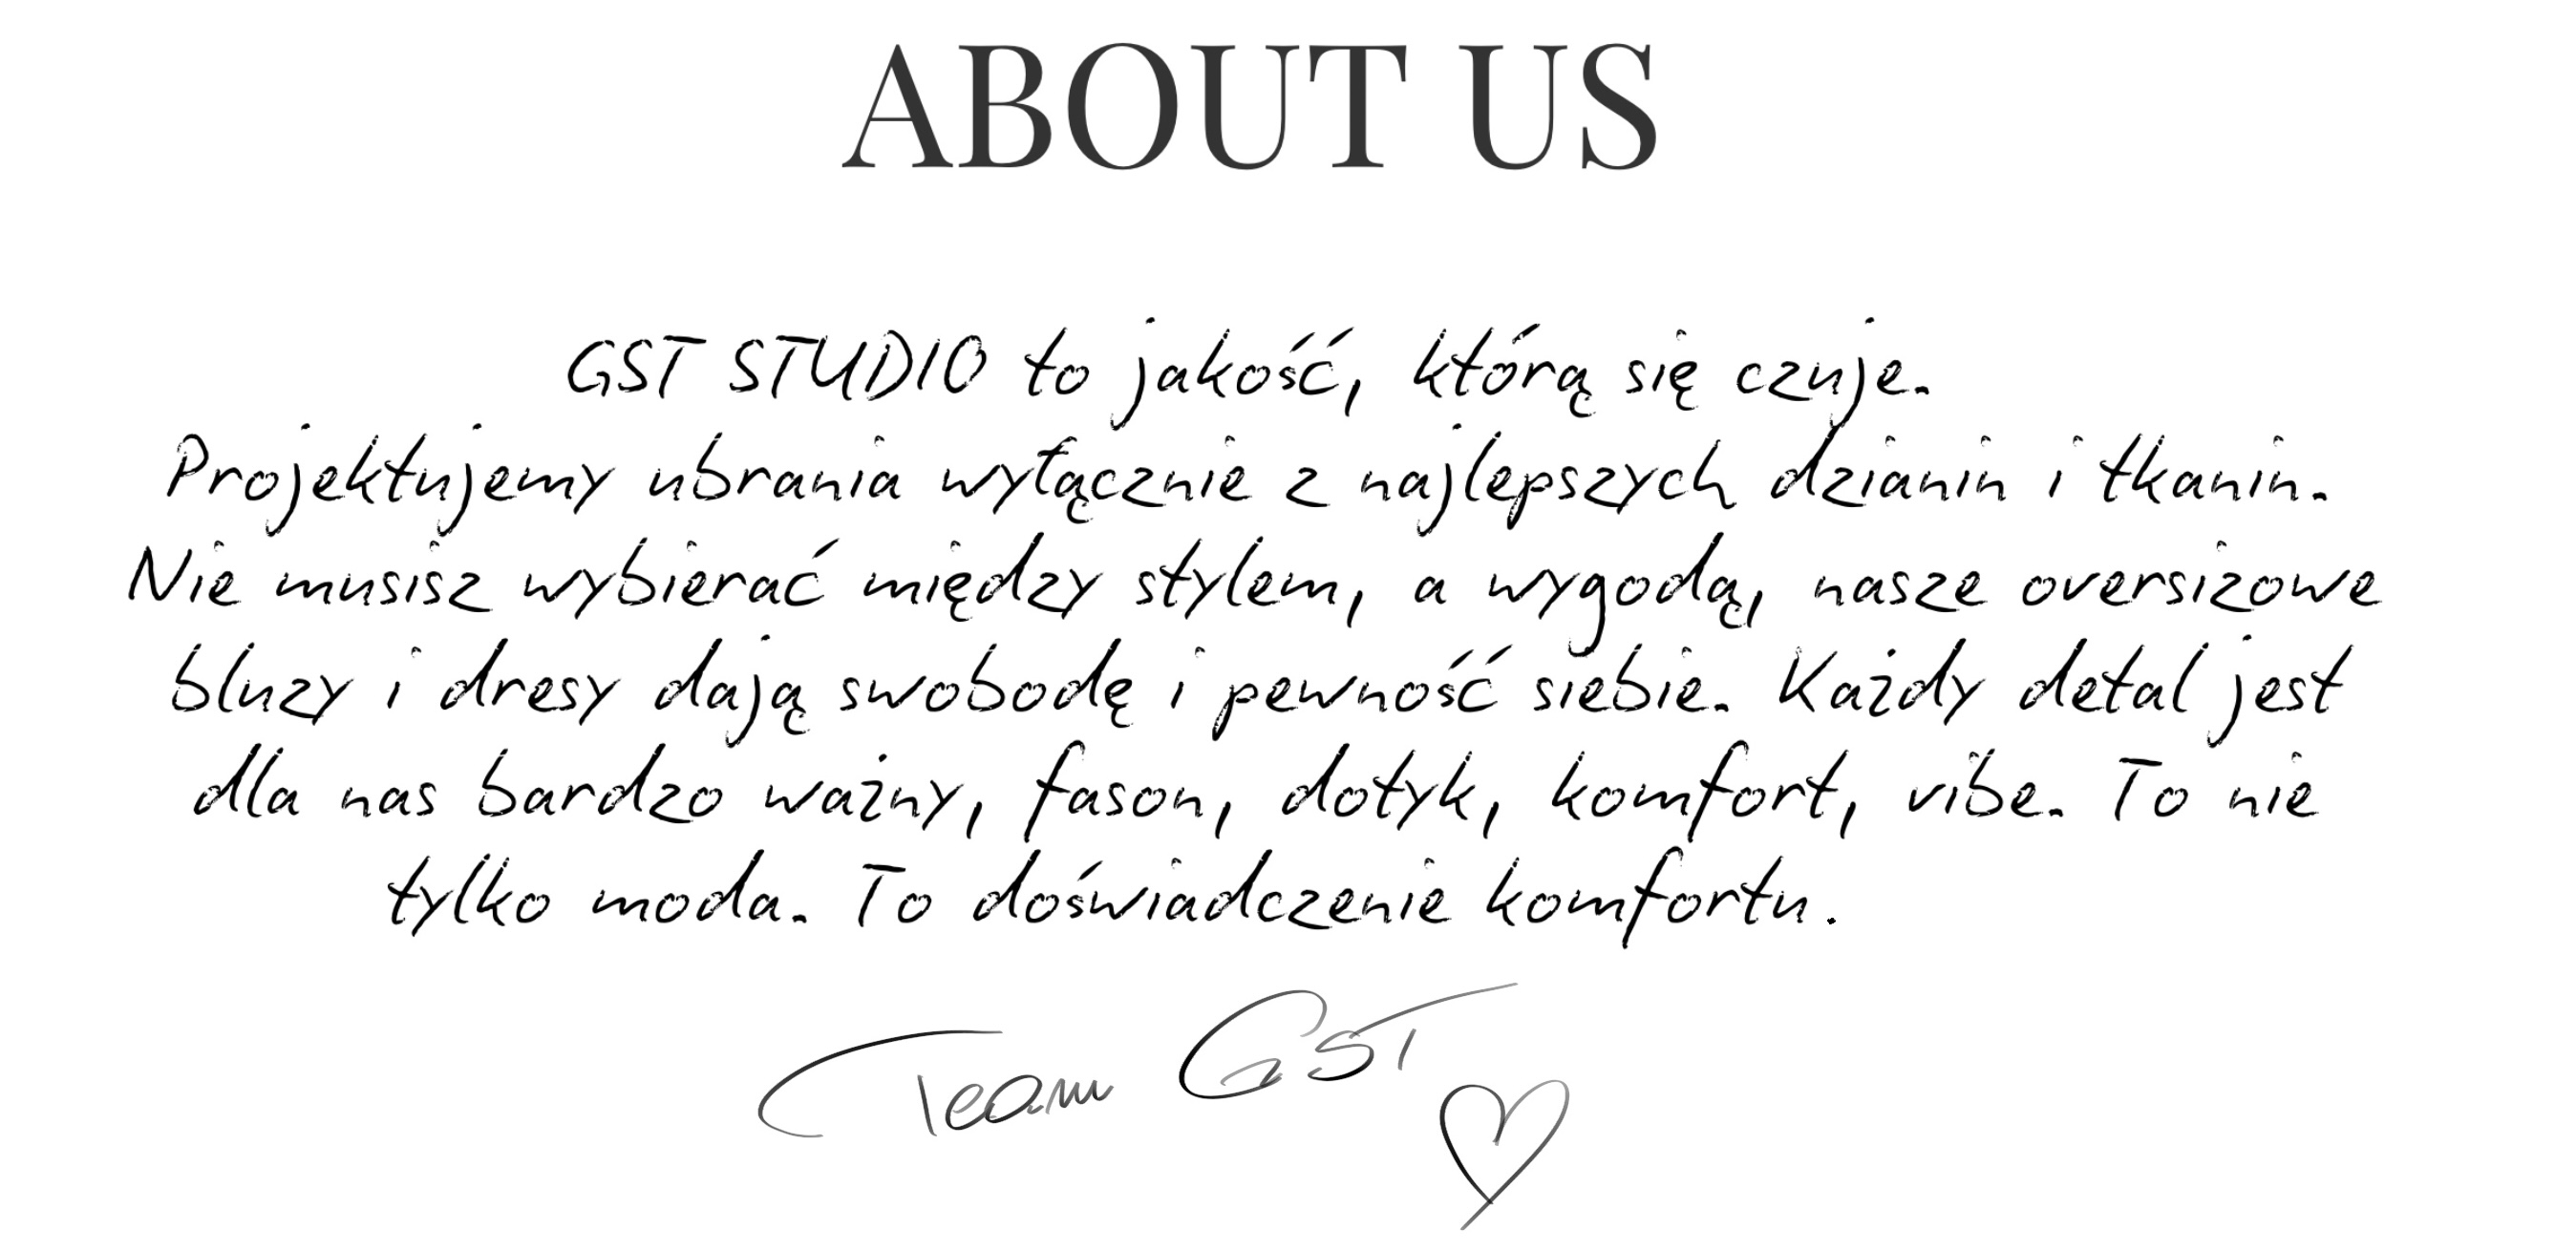 ABOUT US
GST STUDIO to jakość, którą się czuje.
Projektujemy ubrania wyłącznie z najlepszych dzianin i tkanin.
Nie musisz wybierać między stylem, a wygodą, nasze oversizowe
bluzy i dresy dają swobodę i pewność siebie. Każdy detal jest
dla nas bardzo ważny, fason, dotyk, komfort, vibe. To nie
tylko moda. To doświadczenie komfortu.
Team GST